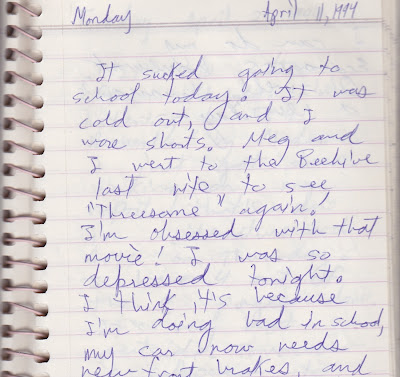 Monday April 11, 1994
It sucked going to
school today. It was
cold out, and I
wore shorts. Meg and
I went to the Beehive
last nite to see
"Threesome" again!
I'm obsessed with that
movie! I was so
depressed tonight.
I think it's because
I'm doing bad in school,
my car now needs
new front brakes, and